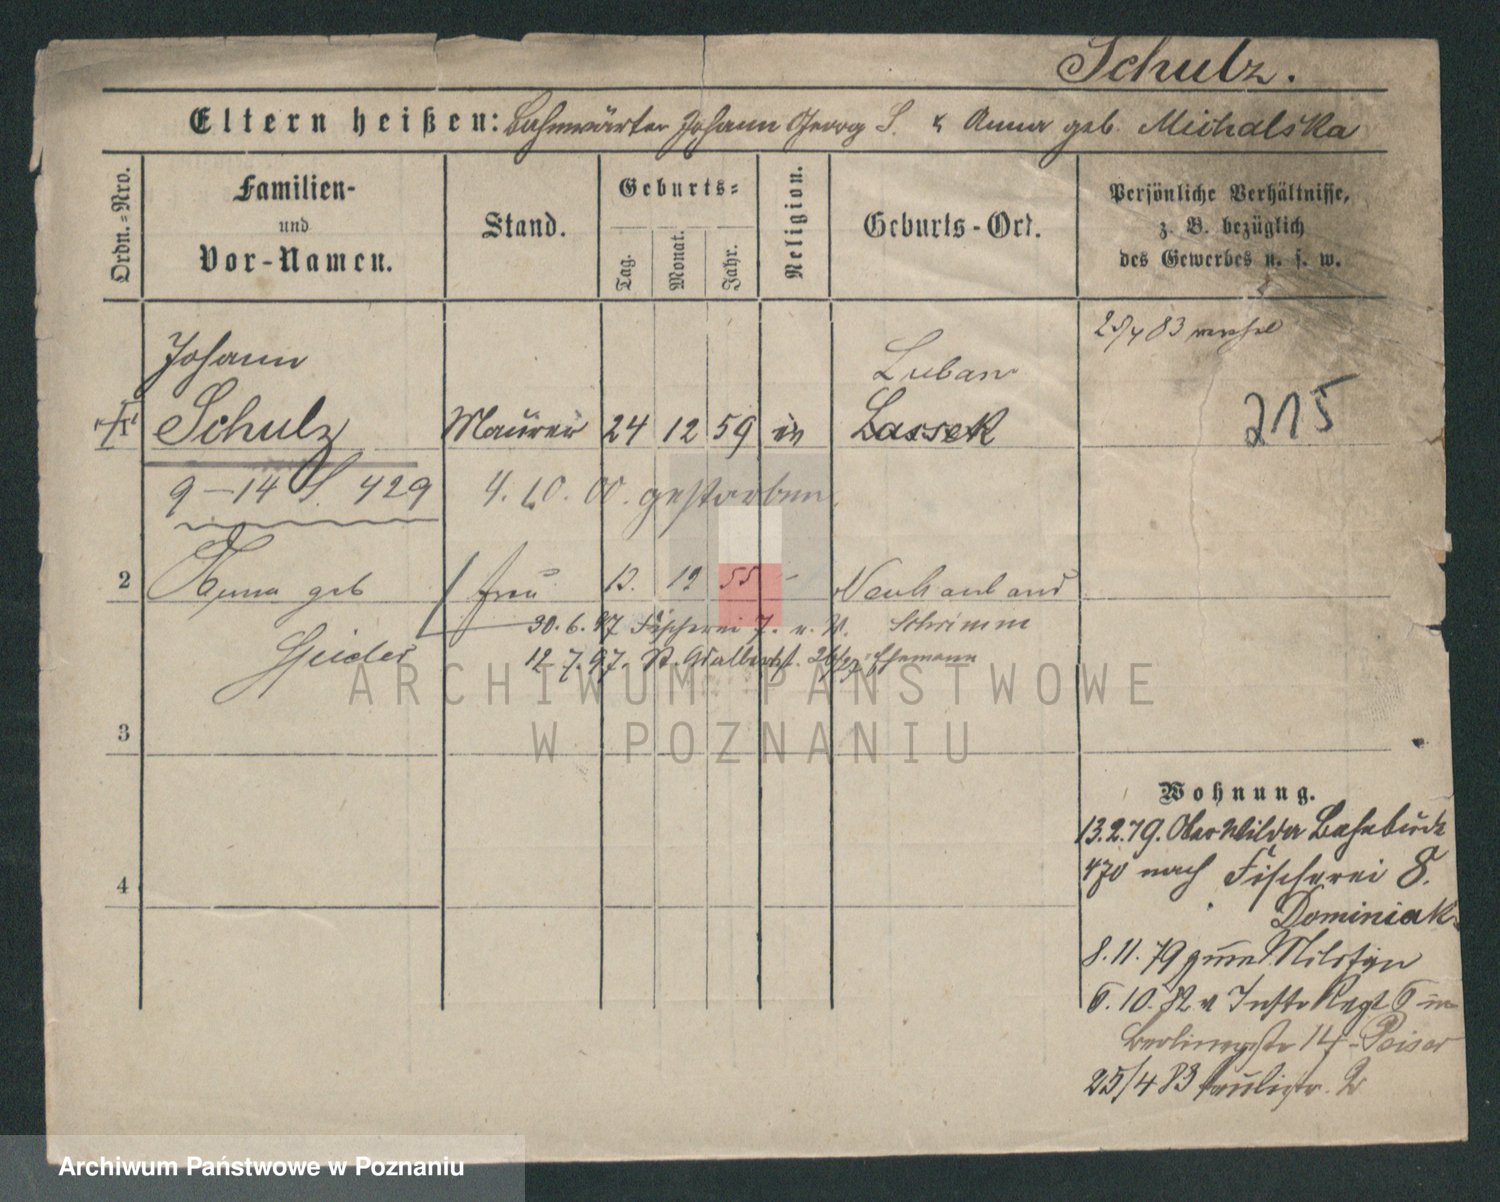 Schulz.
Eltern heißen: Bahnwärter Johann Georg S. & Anna geb. Michalska
Ordn.-Nro.
Familien-
und
Vor-Namen.
Stand.
Geburts-
Tag.
Monat.
Jahr.
Religion.
Geburts-Ort.
Persönliche Verhältnisse,
z. B. bezüglich
des Gewerbes u. s. w.
25/4 83
Johann
Luban
Schulz Maurer 24 12 59 Lassek
215
9-14 S. 429 4. 10. 00. gestorben
2 Anna geb Frau 12 55 -
30.6.97 Fischerei 7.
Schrimm
12 7.97. St. Adalbertst. Ehemann
ARCHIWUM PAŃSTWOWE
W POZNANIU
3
4
Wohnung.
13.2.79. Ober Wilda Bahnbude
470 nach Fischerei 8.
Dominiak
8.11.79
6.10.82 Regt 6 in
14
25/4 83 2
Archiwum Państwowe w Poznaniu